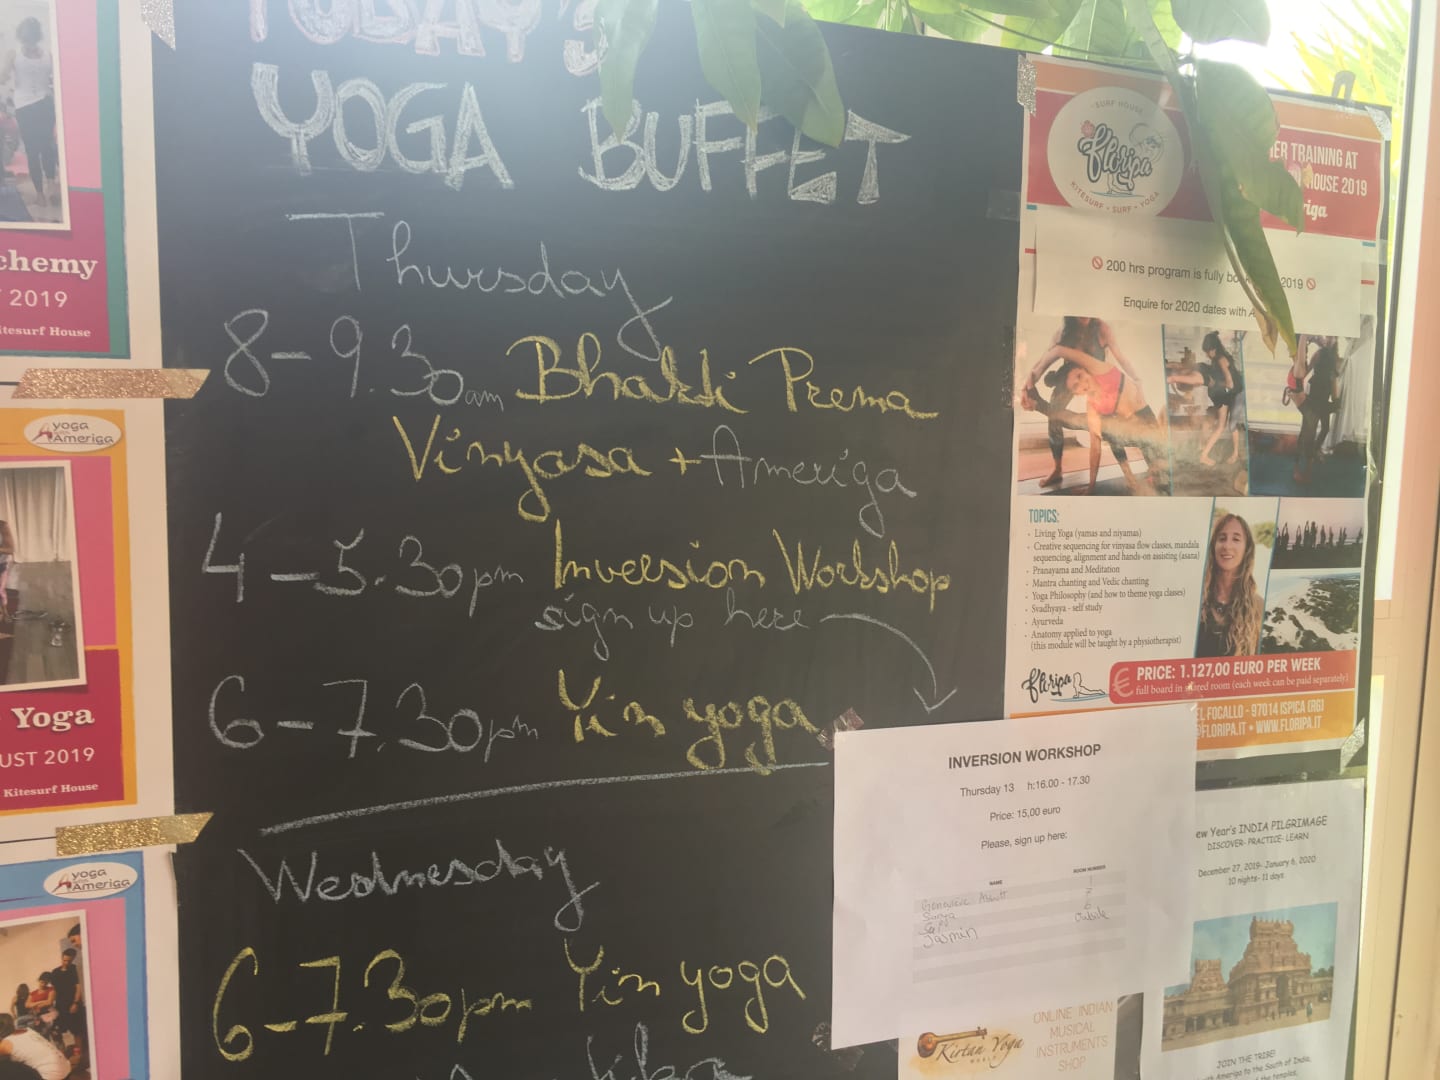 TODAY'S
YOGA BUFFET
Thursday
8-9.30am Bhakti Prema
Vinyasa + Ameriga
4-5.30pm Inversion Workshop
sign up here
6-7.30pm Yin yoga
Wednesday
6-7.30pm Yin yoga
chemy
2019
Kitesurf House
yoga
Ameriga
Yoga
UST 2019
Kitesurf House
yoga
Ameriga
SURF HOUSE
floripa
KITESURF • SURF • YOGA
TRAINING AT
HOUSE 2019
200 hrs program is fully 2019
Enquire for 2020 dates with
TOPICS:
- Living Yoga (yamas and niyamas)
- Creative sequencing for vinyasa flow classes, mandala
sequencing, alignment and hands-on assisting (asana)
- Pranayama and Meditation
- Mantra chanting and Vedic chanting
- Yoga Philosophy (and how to theme yoga classes)
- Svadhyaya - self study
- Ayurveda
- Anatomy applied to yoga
(this module will be taught by a physiotherapist)
floripa
€ PRICE: 1.127,00 EURO PER WEEK
full board in shared room (each week can be paid separately)
FOCALLO - 97014 ISPICA (RG)
@FLORIPA.IT • WWW.FLORIPA.IT
INVERSION WORKSHOP
Thursday 13 h:16.00 - 17.30
Price: 15,00 euro
Please, sign up here:
NAME ROOM NUMBER
Jasmin
New Year's INDIA PILGRIMAGE
DISCOVER- PRACTICE- LEARN
December 27, 2019- January 6, 2020
10 nights- 11 days
JOIN THE TRIBE!
Ameriga to the South of India,
of the temples,
Kirtan Yoga
ONLINE INDIAN
MUSICAL
INSTRUMENTS
SHOP